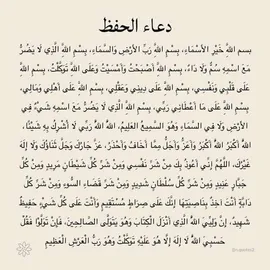 دعاء الحفظ
بسم اللَّهِ خَيْرِ الأَسْمَاءِ، بِسْمِ اللَّهِ رَبِّ الأَرْضِ وَالسَّمَاءِ، بِسْمِ اللَّهِ الَّذِي لَا يَضُرُّ
مَعَ اسْمِهِ سَمٌّ وَلَا دَاءٌ، بِسْمِ اللَّهِ أَصْبَحْتُ وَأَمْسَيْتُ وَعَلَى اللَّهِ تَوَكَّلْتُ، بِسْمِ اللَّهِ
عَلَى قَلْبِي وَنَفْسِي، بِسْمِ اللَّهِ عَلَى دِينِي وَعَقْلِي، بِسْمِ اللَّهِ عَلَى أَهْلِي وَمَالِي،
بِسْمِ اللَّهِ عَلَى مَا أَعْطَانِي رَبِّي، بِسْمِ اللَّهِ الَّذِي لَا يَضُرُّ مَعَ اسْمِهِ شَيْءٌ فِي
الأَرْضِ وَلَا فِي السَّمَاءِ وَهُوَ السَّمِيعُ العَلِيمُ، اللَّهُ اللَّهُ رَبِّي لَا أُشْرِكُ بِهِ شَيْئًا،
اللَّهُ أَكْبَرُ اللَّهُ أَكْبَرُ وَأَعَزُّ وَأَجَلُّ مِمَّا أَخَافُ وَأَحْذَرُ، عَزَّ جَارُكَ وَجَلَّ ثَنَاؤُكَ وَلَا إِلَهَ
غَيْرُكَ، اللَّهُمَّ إِنِّي أَعُوذُ بِكَ مِنْ شَرِّ نَفْسِي وَمِنْ شَرِّ كُلِّ شَيْطَانٍ مَرِيدٍ وَمِنْ كُلِّ
جَبَّارٍ عَنِيدٍ وَمِنْ شَرِّ كُلِّ سُلْطَانٍ شَدِيدٍ وَمِنْ شَرِّ قَضَاءِ السُّوءِ وَمِنْ شَرِّ كُلِّ
دَابَّةٍ أَنْتَ آخِذٌ بِنَاصِيَتِهَا إِنَّكَ عَلَى صِرَاطٍ مُسْتَقِيمٍ وَأَنْتَ عَلَى كُلِّ شَيْءٍ حَفِيظٌ
شَهِيدٌ، إِنَّ وَلِيِّيَ اللَّهُ الَّذِي أَنْزَلَ الْكِتَابَ وَهُوَ يَتَوَلَّى الصَّالِحِينَ، فَإِنْ تَوَلَّوْا فَقُلْ
حَسْبِيَ اللَّهُ لَا إِلَهَ إِلَّا هُوَ عَلَيْهِ تَوَكَّلْتُ وَهُوَ رَبُّ الْعَرْشِ الْعَظِيمِ